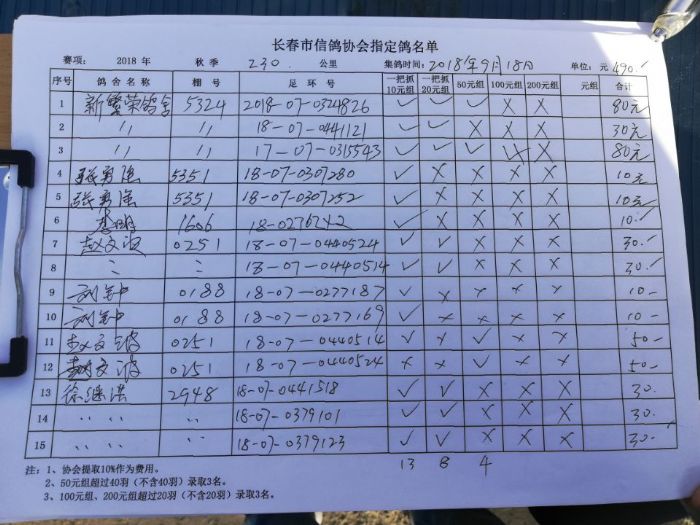 长春市信鸽协会指定鸽名单
赛项： 2018 年 秋 季 230 公里 集鸽时间：2018年9月18日 单位：元 490.-
序号 鸽 舍 名 称 棚 号 足 环 号 一把抓10元组 一把抓20元组 50元组 100元组 200元组 元组 合计
1 新繁荣鸽舍 5324 2018-07-0324826 ✓ ✓ ✓ × × 80元
2 〃 〃 18-07-0441121 ✓ ✓ × × × 30元
3 〃 〃 17-07-0315543 ✓ ✓ ✓ × × 80元
4 张勇强 5351 18-07-0307280 ✓ × × × × 10元
5 张勇强 5351 18-07-0307252 ✓ × × × × 10元
6 李明 1606 ✓ × × × × 10.-
7 赵文波 0251 18-07-0440524 ✓ ✓ × × × 30.-
8 〃 〃 18-07-0440514 ✓ ✓ × × × 30.-
9 刘钟 0188 18-07-0277187 ✓ × × × × 10-
10 刘钟 0188 18-07-0277169 ✓ × × × × 10-
11 赵文波 0251 18-07-0440514 ✓ × ✓ × × 50-
12 赵文波 0251 18-07-0440524 × × ✓ × × 50-
13 2948 18-07-0441518 ✓ ✓ × × × 30.
14 〃 〃 〃 〃 18-07-0379101 ✓ ✓ × × × 30.
15 〃 〃 〃 〃 18-07-0379123 ✓ ✓ × × × 30.-
13 8 4
注：1、协会提取10%作为费用。
2、50元组超过40羽（不含40羽）录取3名。
3、100元组、200元组超过20羽（不含20羽）录取3名。